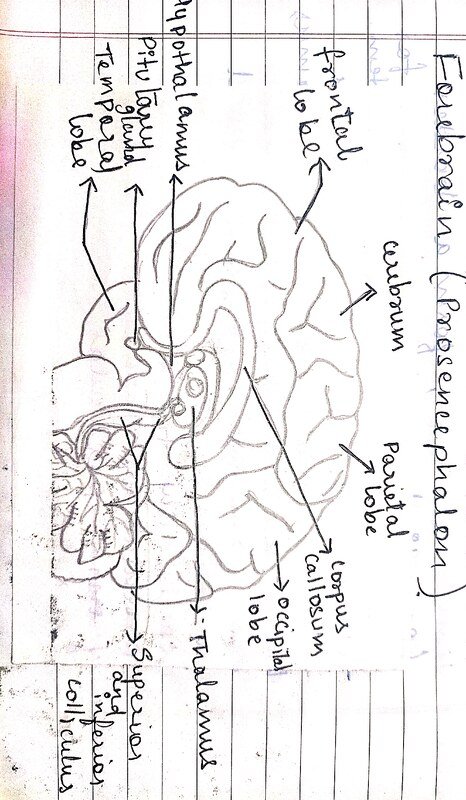 Forebrain (Prosencephalon).
frontal
lobe
cerebrum
Parietal
lobe
corpus
callosum
occipital
lobe
Hypothalamus
Pitutary
gland
Temporal
lobe
Thalamus
Superior
and
inferior
colliculus